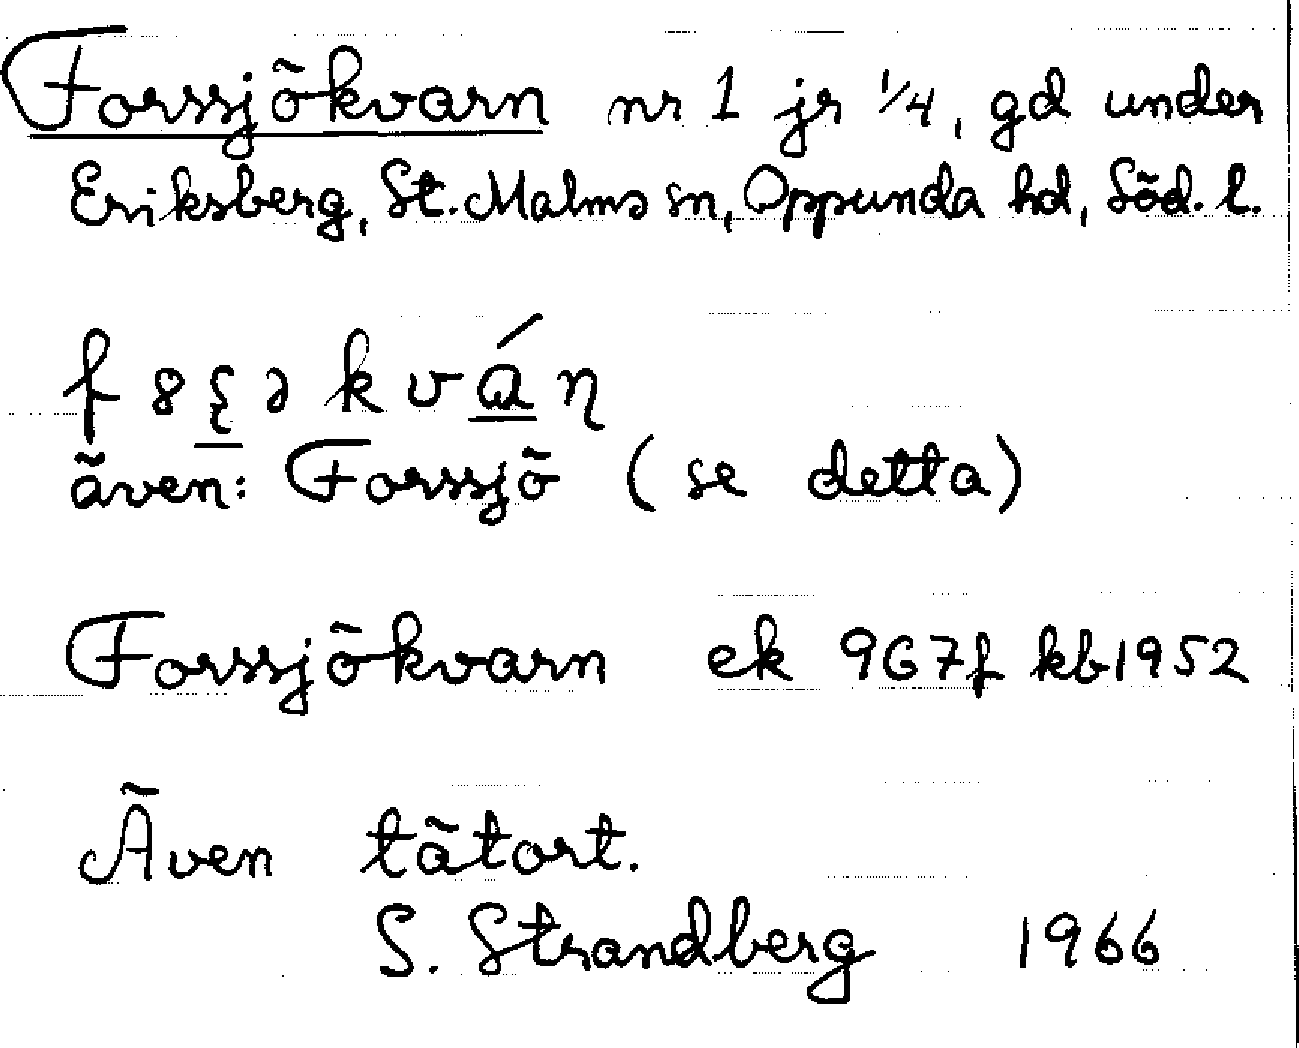 Forssjökvarn nr 1 jr 1/4, gd under
Eriksberg, St. Malms sn, Oppunda hd, Söd. l.
även: Forssjö (se detta)
Forssjökvarn ek 967f kb 1952
Även tätort.
S. Strandberg 1966